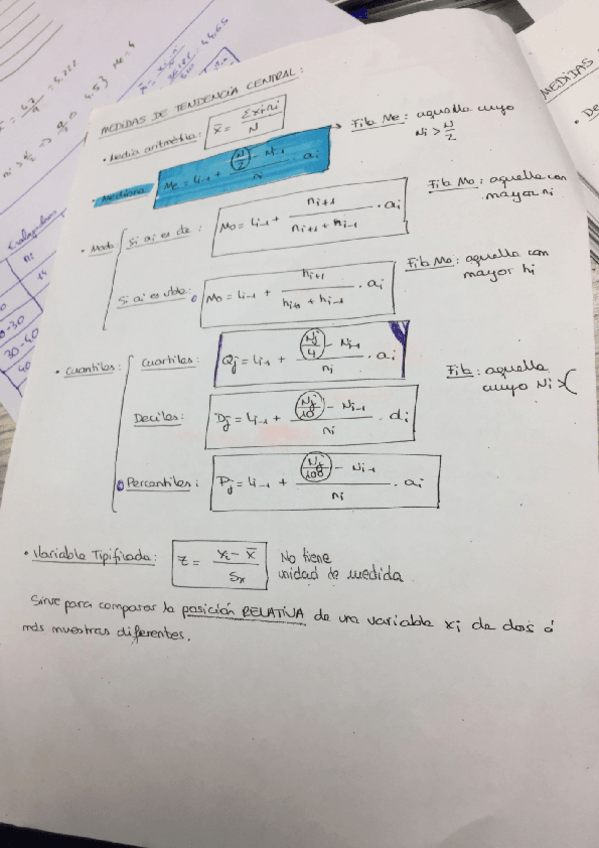 MEDIDAS DE TENDENCIA CENTRAL:
• Media aritmética: x̄ = Σxini / N
• Mediana: Me = Li-1 + (N/2 - Ni-1) / ni · ai → Fila Me: aquella cuyo Ni > N/2
• Modo
Si ai es cte: Mo = Li-1 + ni+1 / (ni+1 + ni-1) · ai
Fila Mo: aquella con mayor ni
Si ai es vble: Mo = Li-1 + hi+1 / (hi+1 + hi-1) · ai
Fila Mo: aquella con mayor hi
• Cuantiles:
Cuartiles: Qj = Li-1 + (Nj/4 - Ni-1) / ni · ai
Fila: aquella cuyo Ni > (
Deciles: Dj = Li-1 + (Nj/10 - Ni-1) / ni · di
Percantiles: Pj = Li-1 + (Nj/100 - Ni-1) / ni · ai
• Variable Tipificada: z = (xi - x̄) / Sx
No tiene
unidad de medida
Sirve para comparar la posición RELATIVA de una variable xi de dos ó
más muestras diferentes.
MEDIDAS